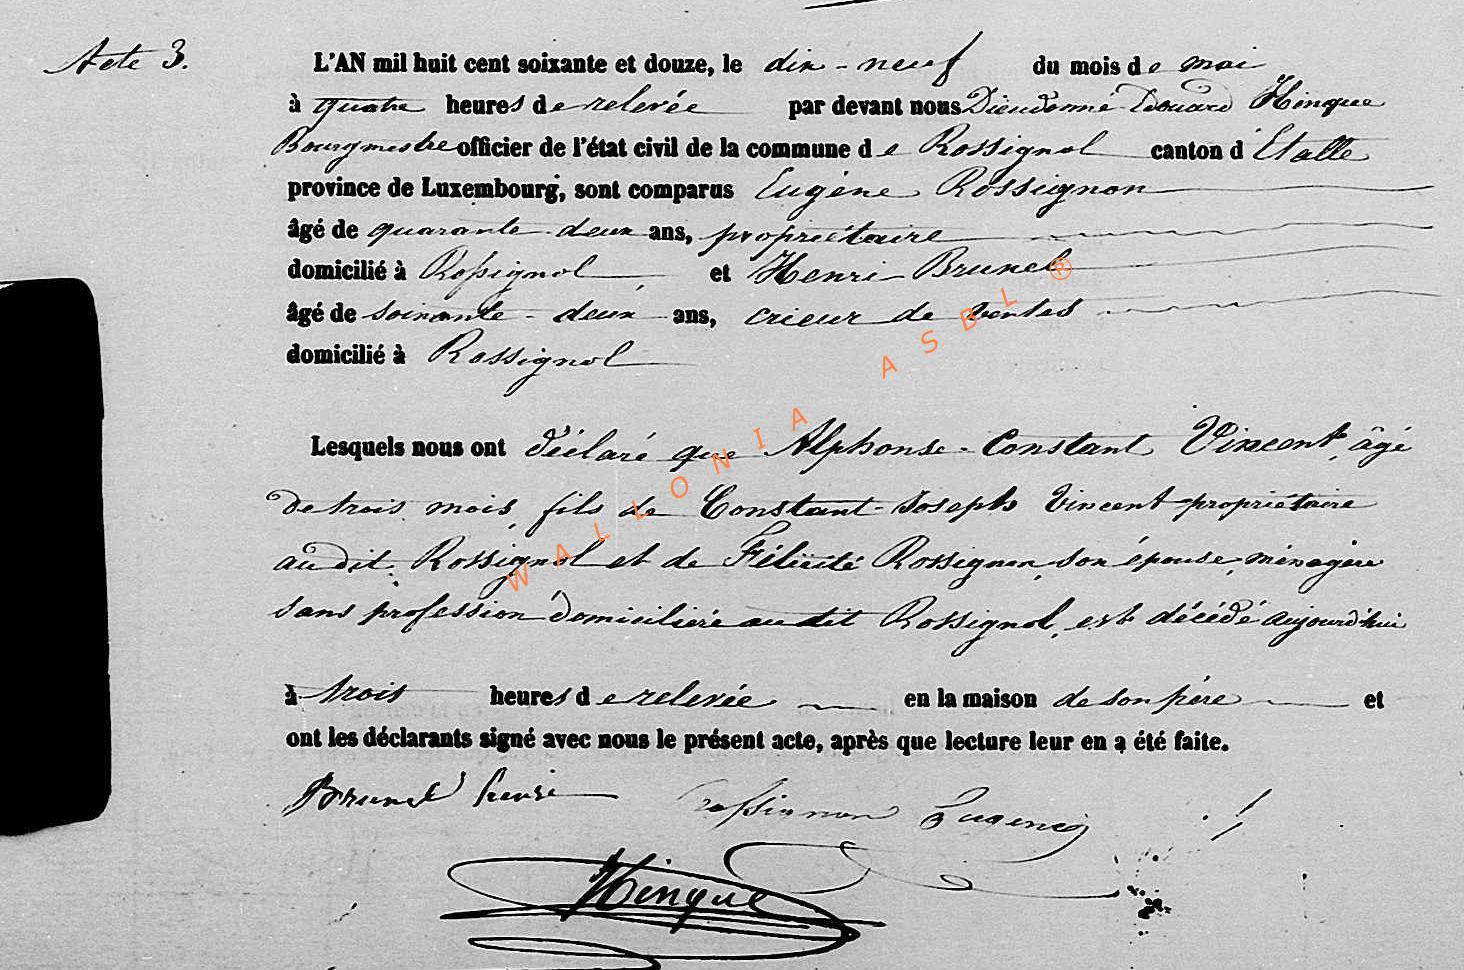 Acte 3.
L'AN mil huit cent soixante et douze, le dix-neuf du mois de mai
à quatre heures de relevée par devant nous Dieudonné Edouard Hinque
Bourgmestre officier de l'état civil de la commune de Rossignol canton d'Etalle
province de Luxembourg, sont comparus Eugène Rossignon
âgé de quarante-deux ans, propriétaire
domicilié à Rossignol et Henri Brunel
âgé de soixante-deux ans, crieur de ventes
domicilié à Rossignol
Lesquels nous ont déclaré que Alphonse-Constant Vincent, âgé
de trois mois, fils de Constant-Joseph Vincent propriétaire
au dit Rossignol et de Félicité Rossignon, son épouse, ménagère
sans profession domiciliée au dit Rossignol, est décédé aujourd'hui
à trois heures de relevée en la maison de son père et
ont les déclarants signé avec nous le présent acte, après que lecture leur en a été faite.
Brunel henri rossignon Eugene
Hinque
WALLONIA ASBL ®